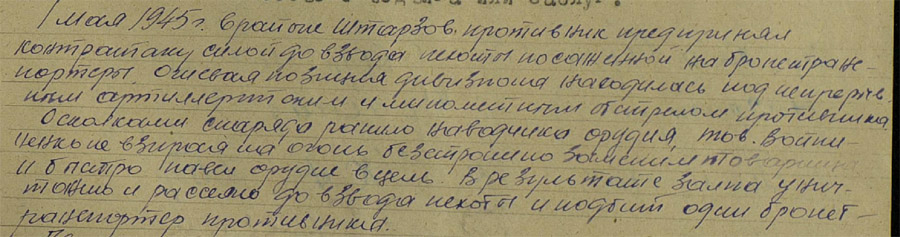 1 мая 1945 г. в районе Штарзов противник предпринял
контратаку силой до взвода пехоты посаженной на бронетранс-
портеры. Огневая позиция дивизиона находилась под непрерыв-
ным артиллерийским и минометным обстрелом противника.
Осколками снаряда ранило наводчика орудия, тов. Войни-
ненко не взирая на огонь безстрашно заменил товарища
и быстро навел орудие в цель. В результате залпа унич-
тожено и рассеяно до взвода пехоты и подбит один бронет-
ранспортер противника.